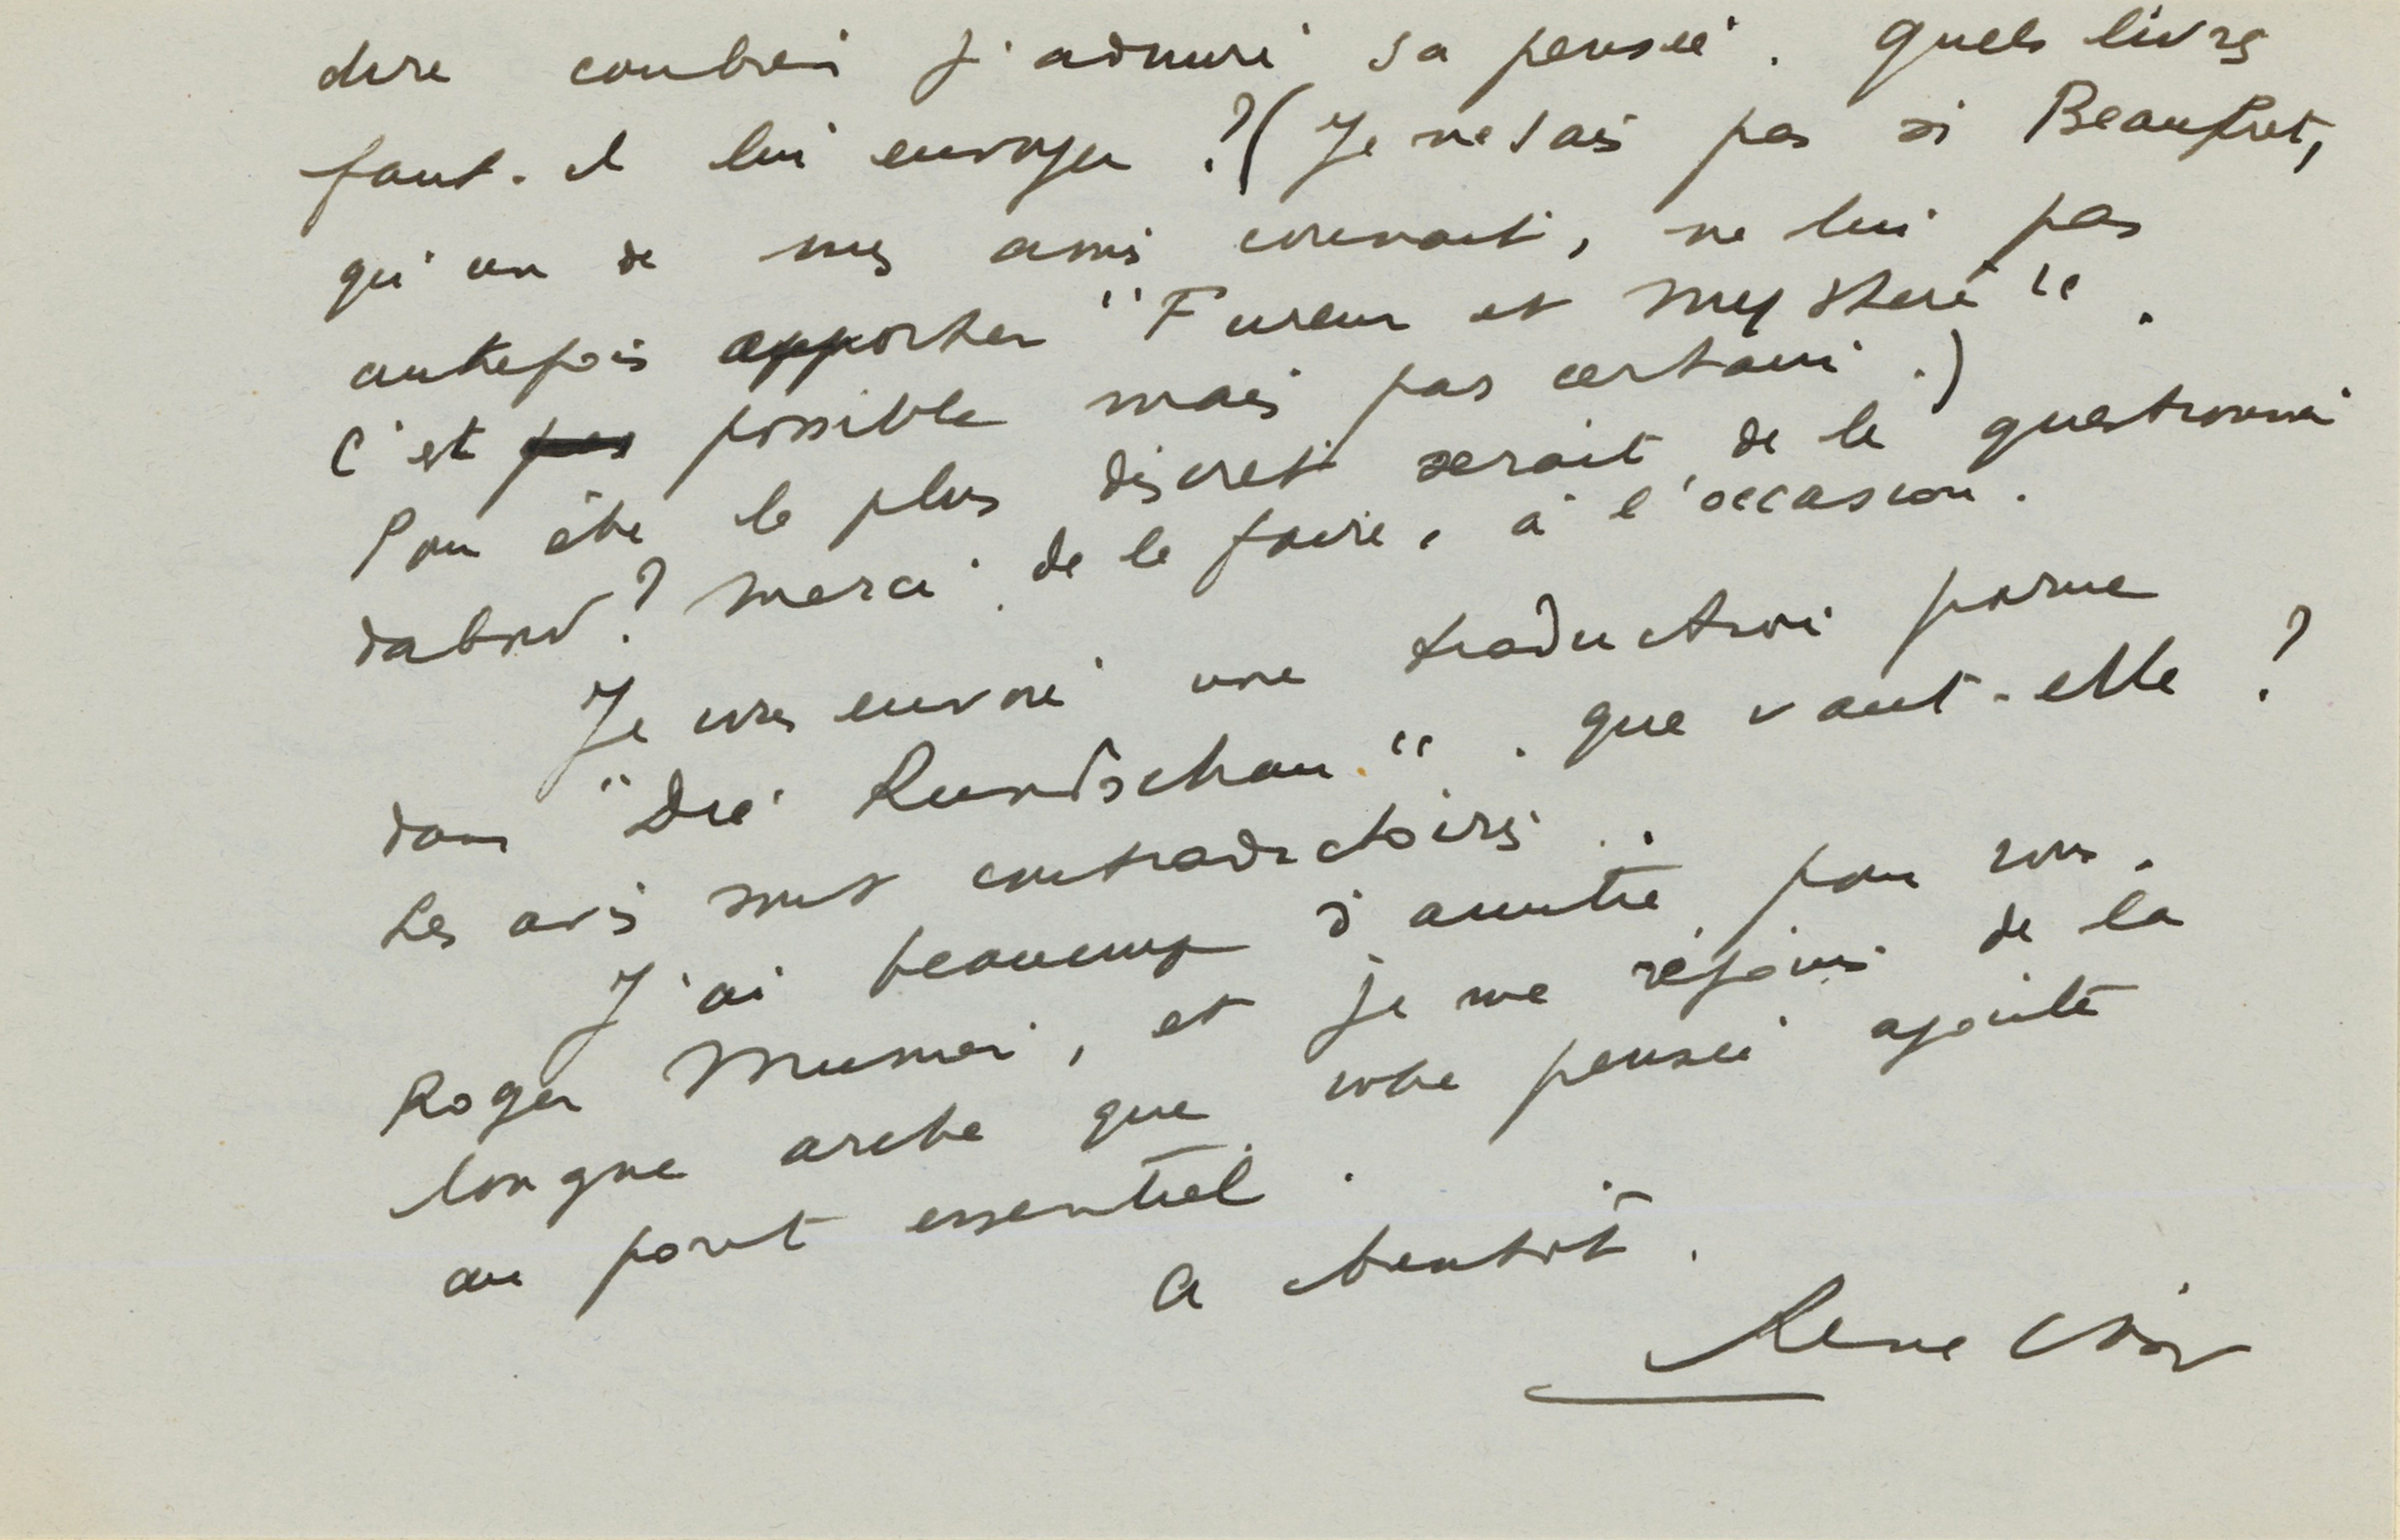 dire combien j'admire sa pensée. Quels livres
faut-il lui envoyer ? (Je ne sais pas si Beaufret,
qu'un de mes amis connait, ne lui pas
autrefois apporter "Fureur et Mystère".
C'est pas possible mais pas certain.)
Pour être le plus discret serait de le questionner
dabord ? Merci de le faire, à l'occasion.
Je vous envoie une traduction parue
dans "Die Rundschau". que vaut-elle ?
Les avis sont contradictoires..
J'ai beaucoup d'amitié pour vous,
Roger Munier, et je me réjouis de la
longue arche que votre pensée ajoute
au pont essentiel.
A bientôt.
René Char